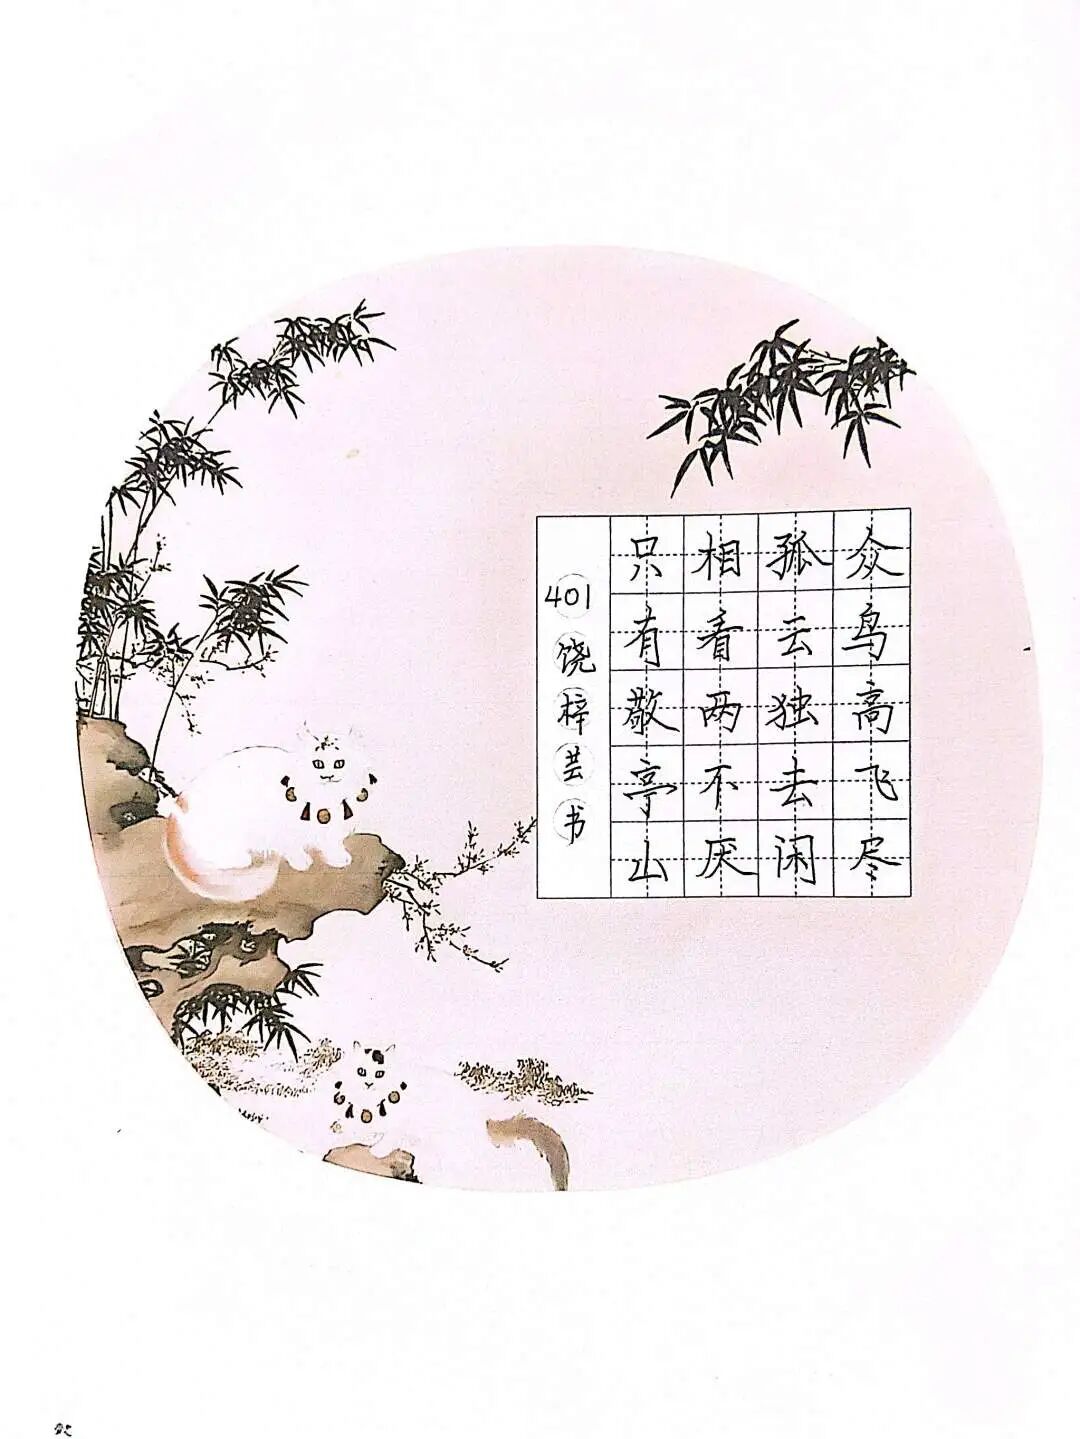 众鸟高飞尽
孤云独去闲
相看两不厌
只有敬亭山
401饶梓芸书